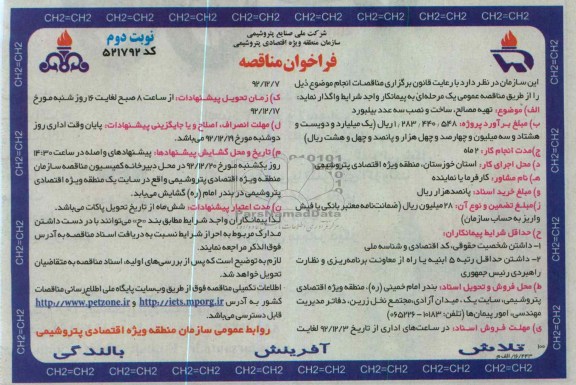 شرکت ملی صنایع پتروشیمی
سازمان منطقه ویژه اقتصادی پتروشیمی
نوبت دوم
کد ۵۲۱۷۹۲
فراخوان مناقصه
این سازمان در نظر دارد با رعایت قانون برگزاری مناقصات انجام موضوع ذیل
را از طریق مناقصه عمومی یک مرحله‌ای به پیمانکار واجد شرایط واگذار نماید:
الف) موضوع: تهیه مصالح، ساخت و نصب سه عدد بیلبورد
ب) مبلغ برآورد پروژه: ۱,۲۸۳,۴۴۰,۵۴۸ ریال (یک میلیارد و دویست و
هشتاد و سه میلیون و چهارصد و چهل هزار و پانصد و چهل و هشت ریال)
ج) مدت انجام کار: ۲ ماه
د) محل اجرای کار: استان خوزستان، منطقه ویژه اقتصادی پتروشیمی
ه) نام مشاور: کارفرما یا نماینده
و) مبلغ خرید اسناد: پانصدهزار ریال
ز) مبلغ تضمین و نوع آن: ۲۸ میلیون ریال (ضمانت‌نامه معتبر بانکی یا فیش
واریز به حساب سازمان)
ح) حداقل شرایط پیمانکاران:
۱- داشتن شخصیت حقوقی، کد اقتصادی و شناسه ملی
۲- داشتن حداقل رتبه ۵ ابنیه یا راه از معاونت برنامه‌ریزی و نظارت
راهبردی رئیس جمهوری
ط) محل فروش و تحویل اسناد: بندر امام خمینی (ره)، منطقه ویژه اقتصادی
پتروشیمی، سایت یک، میدان آزادی، مجتمع نخل زرین، دفاتر مدیریت
مهندسی، امور پیمان‌ها (تلفن: ۱۰۱۸۳-۰۶۵۲۲۶)
ی) مهلت فروش اسناد: در ساعت‌های اداری از تاریخ ۹۲/۱۲/۳ لغایت
۹۲/۱۲/۷
ک) زمان تحویل پیشنهادات: از ساعت ۸ صبح لغایت ۱۶ روز شنبه مورخ
۹۲/۱۲/۱۷
ل) مهلت انصراف، اصلاح و یا جایگزینی پیشنهادات: پایان وقت اداری روز
دوشنبه مورخ ۹۲/۱۲/۱۹ می‌باشد.
م) تاریخ و محل گشایش پیشنهادها: پیشنهادهای واصله در ساعت ۱۴:۳۰
روز یکشنبه مورخ ۹۲/۱۲/۲۰ در محل دبیرخانه کمیسیون مناقصه سازمان
منطقه ویژه اقتصادی پتروشیمی واقع در سایت یک منطقه ویژه اقتصادی
پتروشیمی در بندر امام (ره) گشایش می‌یابد.
ن) مدت اعتبار پیشنهادات: شش ماه از تاریخ تحویل پاکات می‌باشد.
لذا پیمانکاران واجد شرایط مطابق بند «ح» می‌توانند با در دست داشتن
مدارک مربوط به احراز شرایط نسبت به دریافت اسناد مناقصه به آدرس
فوق‌الذکر مراجعه نمایند.
لازم به توضیح است که پس از بررسی‌های اولیه، اسناد مناقصه به متقاضیان
تحویل خواهد شد.
اطلاعات تکمیلی مناقصه فوق از طریق وب‌سایت پایگاه ملی اطلاع‌رسانی مناقصات
کشور به آدرس http://iets.mporg.ir و http://www.petzone.ir
قابل دسترسی می‌باشد.
روابط عمومی سازمان منطقه ویژه اقتصادی پتروشیمی
تلاش آفرینش بالندگی